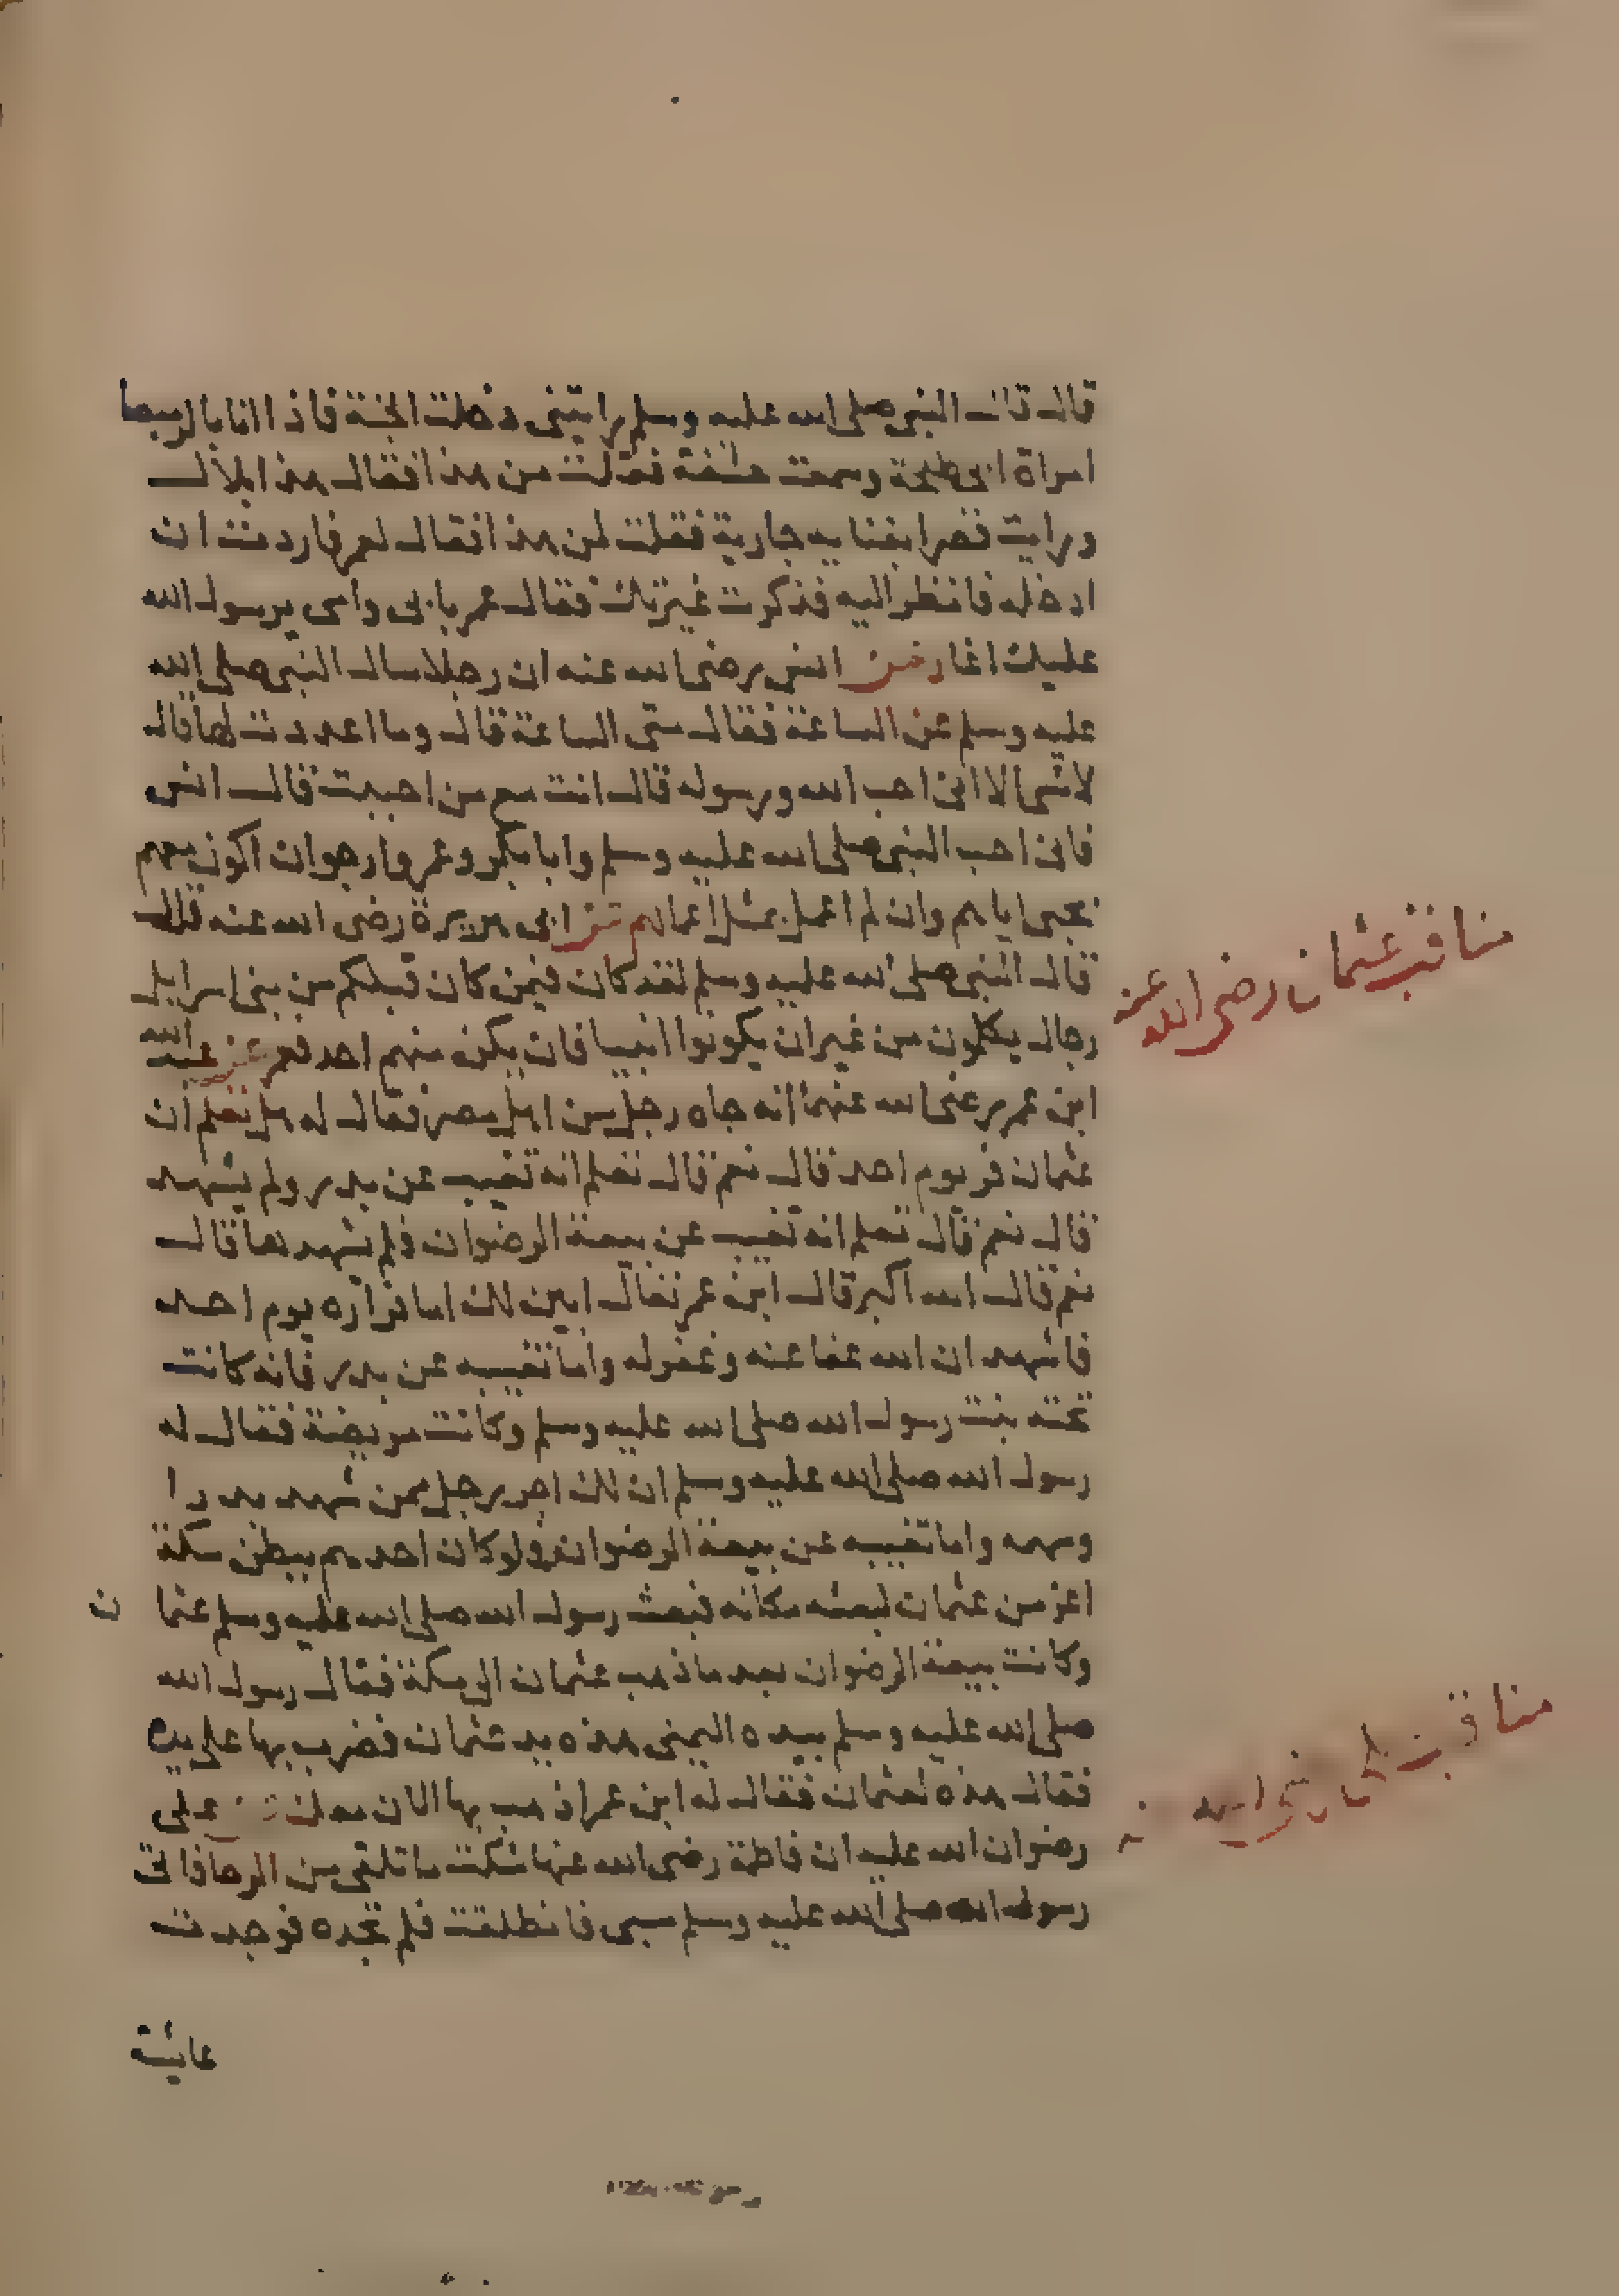 قال قال النبي صلى الله عليه وسلم رايتني دخلت الجنة فاذا انا بالرميصا
امراة ابي طلحة وسمعت خشفة فقلت من هذا فقال هذا بلال
ورايت قصرا بفنايه جارية فقلت لمن هذا فقال لعمر فاردت ان
ادخله فانظر اليه فذكرت غيرتك فقال عمر بابي وامي يرسول الله
عليك اغار عن انس رضي الله عنه ان رجلا سال النبي صلى الله
عليه وسلم عن الساعة فقال متى الساعة قال وما اعددت لها قال
لاشي الا اني احب الله ورسوله قال انت مع من احببت قال انس
فانا احب النبي صلى الله عليه وسلم وابا بكر وعمر وارجوان اكون معهم
بحبي اياهم وان لم اعمل بمثل اعمالهم عن ابي هريرة رضي الله عنه قال
قال النبي صلى الله عليه وسلم لقد كان فيمن كان قبلكم من بني اسرايل
رجال يكلمون من غيران يكونوا انبيا فان يكن منهم احد فعمر عن عبد الله
ابن عمر رضي الله عنهما انه جاه رجل من اهل مصر فقال له هل تعلم ان
عثمان فر يوم احد قال نعم قال تعلم انه تغيب عن بدر ولم يشهد
قال نعم قال تعلم انه تغيب عن بيعة الرضوان فلم يشهدها قال
نعم قال الله اكبر قال ابن عمر تعال ابين لك اما فراره يوم احد
فاشهد ان الله عفا عنه وغفرله واما تغيبه عن بدر فانه كانت
تحته بنت رسول الله صلى الله عليه وسلم وكانت مريضة فقال له
رسول الله صلى الله عليه وسلم ان لك اجر رجل ممن شهد بدرا
وسهمه واما تغيبه عن بيعة الرضوان فلوكان احدهم ببطن مكة
اعز من عثمان لبعثه مكانه فبعث رسول الله صلى الله عليه وسلم عثمان
وكانت بيعة الرضوان بعد ما ذهب عثمان الى مكة فقال رسول الله
صلى الله عليه وسلم بيده اليمنى هذه يد عثمان فضرب بها على يده
فقال هذه لعثمان فقال له ابن عمر اذهب بها الان معك عن على
رضوان الله عليه ان فاطمة رضي الله عنها شكت ما تلقى من الرحا فاتى
رسول الله صلى الله عليه وسلم سبي فانطلقت فلم تجده فوجدت
عايشة
مناقب عثمان رضي الله عنه
مناقب على رضي الله عنه